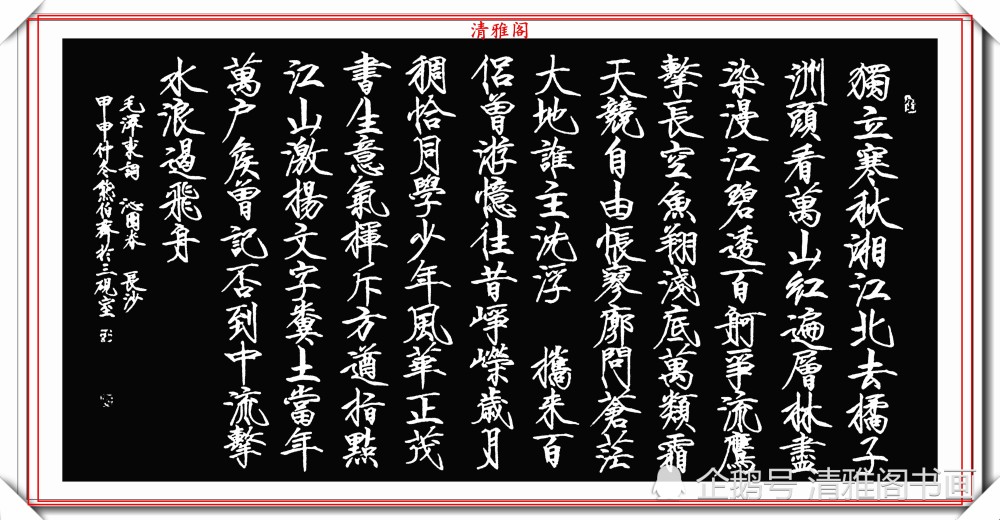 清雅阁
獨立寒秋湘江北去橘子
洲頭看萬山紅遍層林盡
染漫江碧透百舸爭流鷹
擊長空魚翔淺底萬類霜
天競自由悵寥廓問蒼茫
大地誰主沈浮 攜来百
侶曾游憶往昔崢嶸歲月
稠恰同學少年風華正茂
書生意氣揮斥方遒指點
江山激揚文字糞土當年
萬户矦曾記否到中流擊
水浪遏飛舟
毛澤東詞 沁園春 長沙
甲申仲冬熊伯齊於三硯室
企鹅号 清雅阁书画